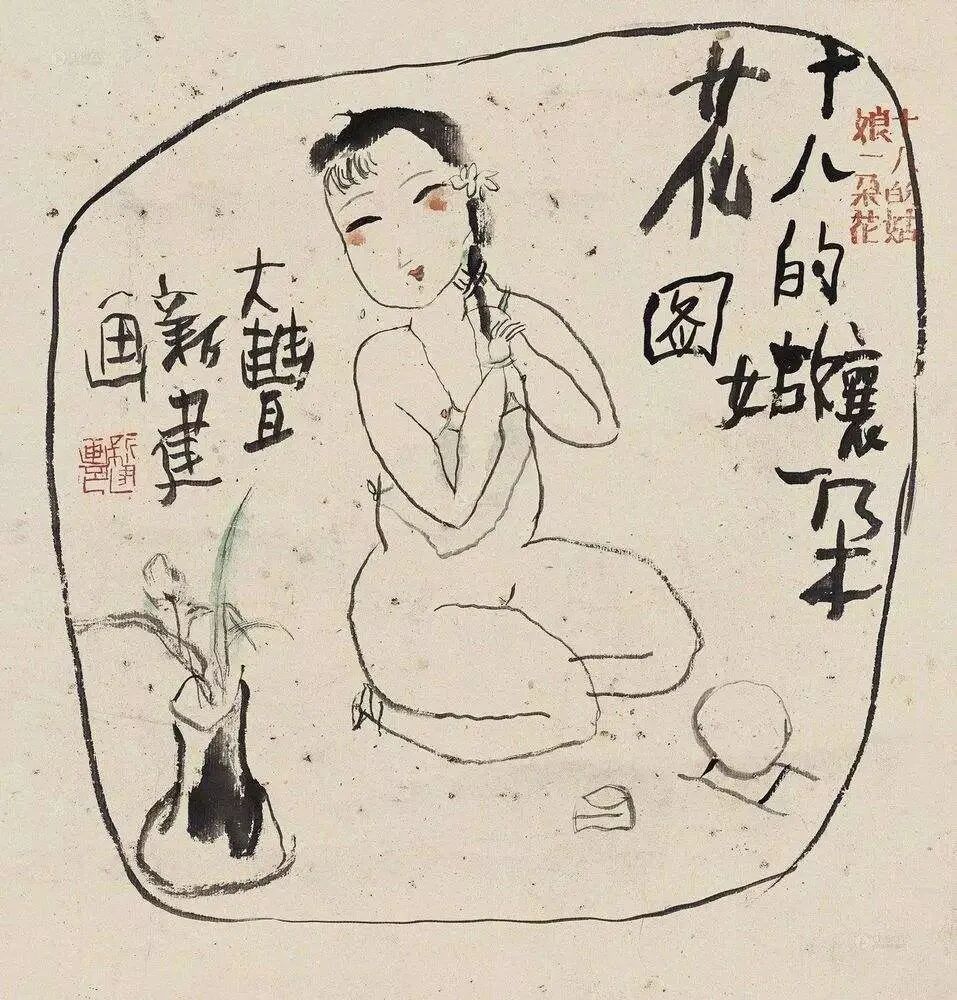 十八的姑孃一朵
花图
十八的姑
娘一朵花
大豐
新建
画